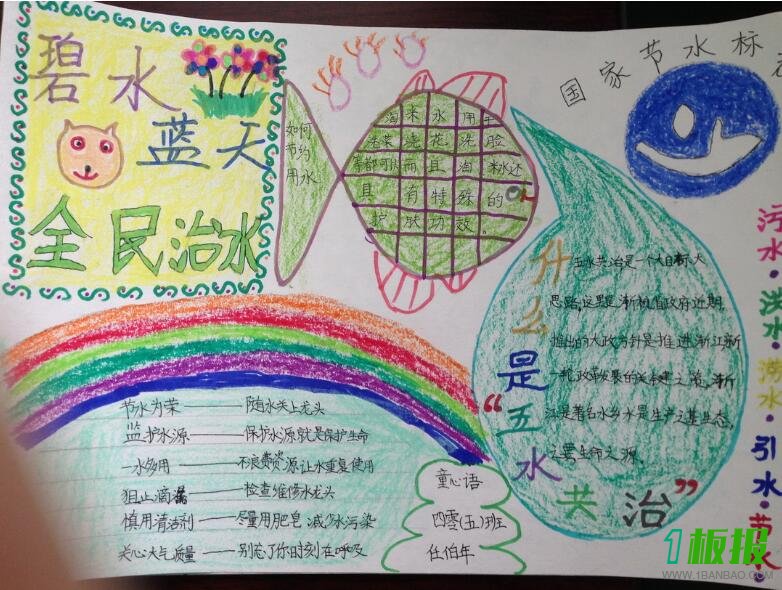 碧水
蓝天
全民治水
如何
节约
用水
淘来水用于
洗菜浇花洗脸
等都可以而且淘米水还
具有特殊的
护肤功效.
国家节水标志
什么是“五水共治”
五水共治是一个大目标、大
思路,这是浙江省政府近期
推出的大政方针是推进浙江新
一轮改革发展的关键之策.浙
江是著名水乡水是生产之基生态
之要生命之源.
污水·洪水·涝水·引水·节水·
节水为荣——随水关上龙头
监护水源——保护水源就是保护生命
一水多用——不浪费资源让水重复使用
阻止滴漏——检查维修水龙头
慎用清洁剂——尽量用肥皂减少水污染
关心大气质量——别忘了你时刻在呼及
童心语
四零(五)班
任伯年
1板报
WWW.1BANBAO.COM